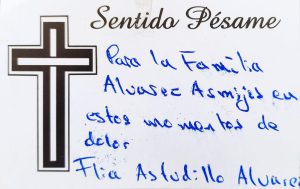 Sentido Pésame
Para la Familia
Alvarez Asmijos en
estos momentos de
dolor
Flia Astudillo Alvarez